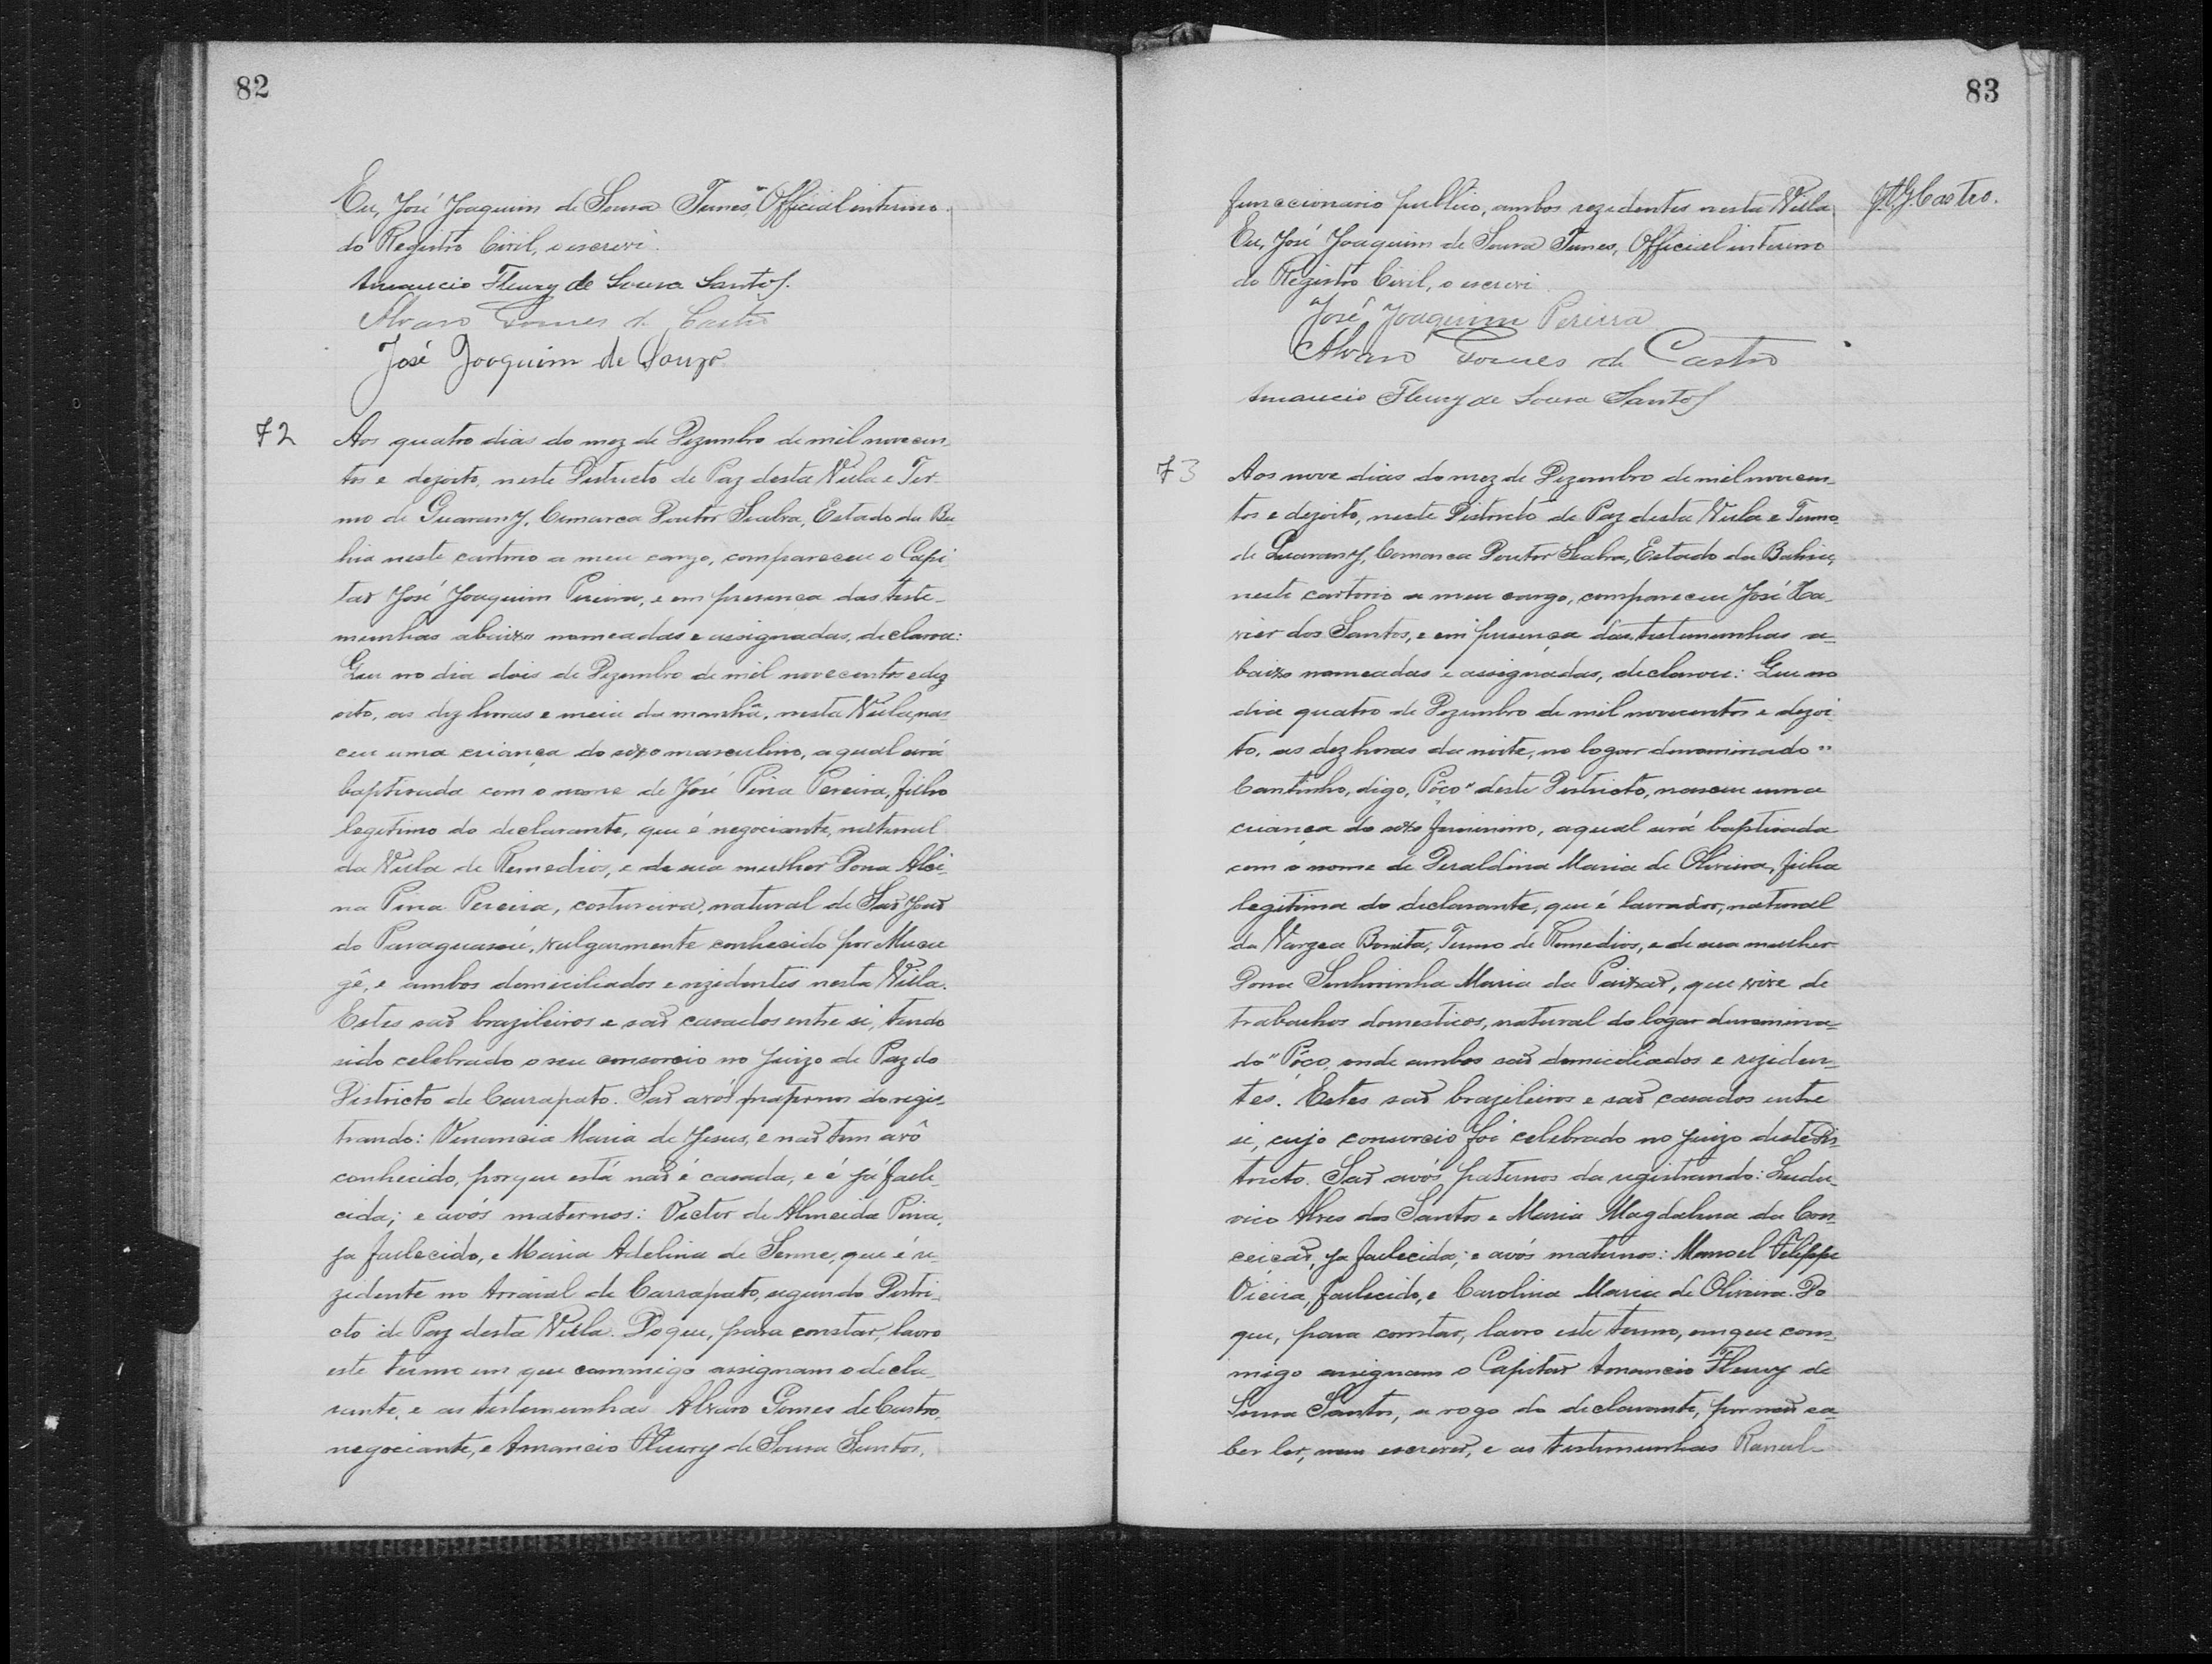 82
Eu, José Joaquim de Sousa Tunes, Official interino
do Registro Civil, o escrevi.
Amancio Fleury de Sousa Santos.
Alvaro Gomes de Castro
José Joaquim de Souza
72
Aos quatro dias do mez de Dezembro de mil novecen-
tos e dezoito, neste Districto de Paz desta Villa e Ter-
mo de Guarany, Comarca Doutor Seabra, Estado da Ba-
hia neste cartorio a meu cargo, compareceu o Capi-
tão José Joaquim Pereira, e em presença das teste-
munhas abaixo nomeadas e assignadas, declarou:
Que no dia dois de Dezembro de mil novecentos e dez
oito, as dez horas e meia da manhã, nesta Villa, nas-
ceu uma criança do sexo masculino, a qual será
baptisada com o nome de José Pina Pereira, filho
legitimo do declarante, que é negociante, natural
da Villa de Remedios, e de sua mulher Dona Alci-
na Pina Pereira, costureira, natural de São João
do Paraguassú, vulgarmente conhecido por Mucu
gê, e ambos domiciliados e rezidentes nesta Villa.
Estes são brazileiros e são casados entre si, tendo
sido celebrado o seu consorcio no Juizo de Paz do
Districto de Carrapato. São avós paternos do regis-
trando: Venancia Maria de Jesus, e não tem avô
conhecido, porque está não é casada, e é já falle-
cida; e avós maternos: Victor de Almeida Pina,
ja fallecido, e Maria Adelina de Senne, que é re-
zidente no Arraial de Carrapato, segundo Distri-
cto de Paz desta Villa. Do que, para constar, lavro
este termo em que commigo assignam o decla-
rante, e as testemunhas Alvaro Gomes de Castro,
negociante, e Amancio Fleury de Sousa Santos,
83
funccionario publico, ambos rezidentes nesta Villa
A. G. Castro.
Eu, José Joaquim de Sousa Tunes, Official interino
do Registro Civil, o escrevi.
José Joaquim Pereira
Alvaro Gomes de Castro
Amancio Fleury de Sousa Santos
73
Aos nove dias do mez de Dezembro de mil novecen-
tos e dezoito, neste Districto de Paz desta Villa e Termo
de Guarany, Comarca Doutor Seabra, Estado da Bahia,
neste cartorio a meu cargo, compareceu José Xa-
vier dos Santos, e em presença das testemunhas a-
baixo nomeadas e assignadas, declarou: Que no
dia quatro de Dezembro de mil novecentos e dezoi-
to, as dez horas da noite, no logar denominado "
Cantinho, digo, Pôço" deste Districto, nasceu uma
criança do sexo femenino, a qual será baptisada
com o nome de Geraldina Maria de Oliveira, filha
legitima do declarante, que é lavrador, natural
da Varzea Bonita, Termo de Remedios, e de sua mulher
Dona Senhorinha Maria da Paixão, que vive de
trabalhos domesticos, natural do logar denomina-
do "Pôço, onde ambos são domiciliados e reziden-
tes. Estes são brazileiros e são casados entre
si, cujo consorcio foi celebrado no Juizo deste Dis-
tricto. São avós paternos da registrando: Ludu-
vico Alves dos Santos e Maria Magdalena da Con-
ceição, ja fallecida; e avós maternos: Manoel Felippe
Vieira, fallecido, e Carolina Maria de Oliveira. Do
que, para constar, lavro este termo, em que com-
migo assignam o Capitão Amancio Fleury de
Sousa Santos, a rogo do declarante, por não sa-
ber ler, nem escrever, e as testemunhas